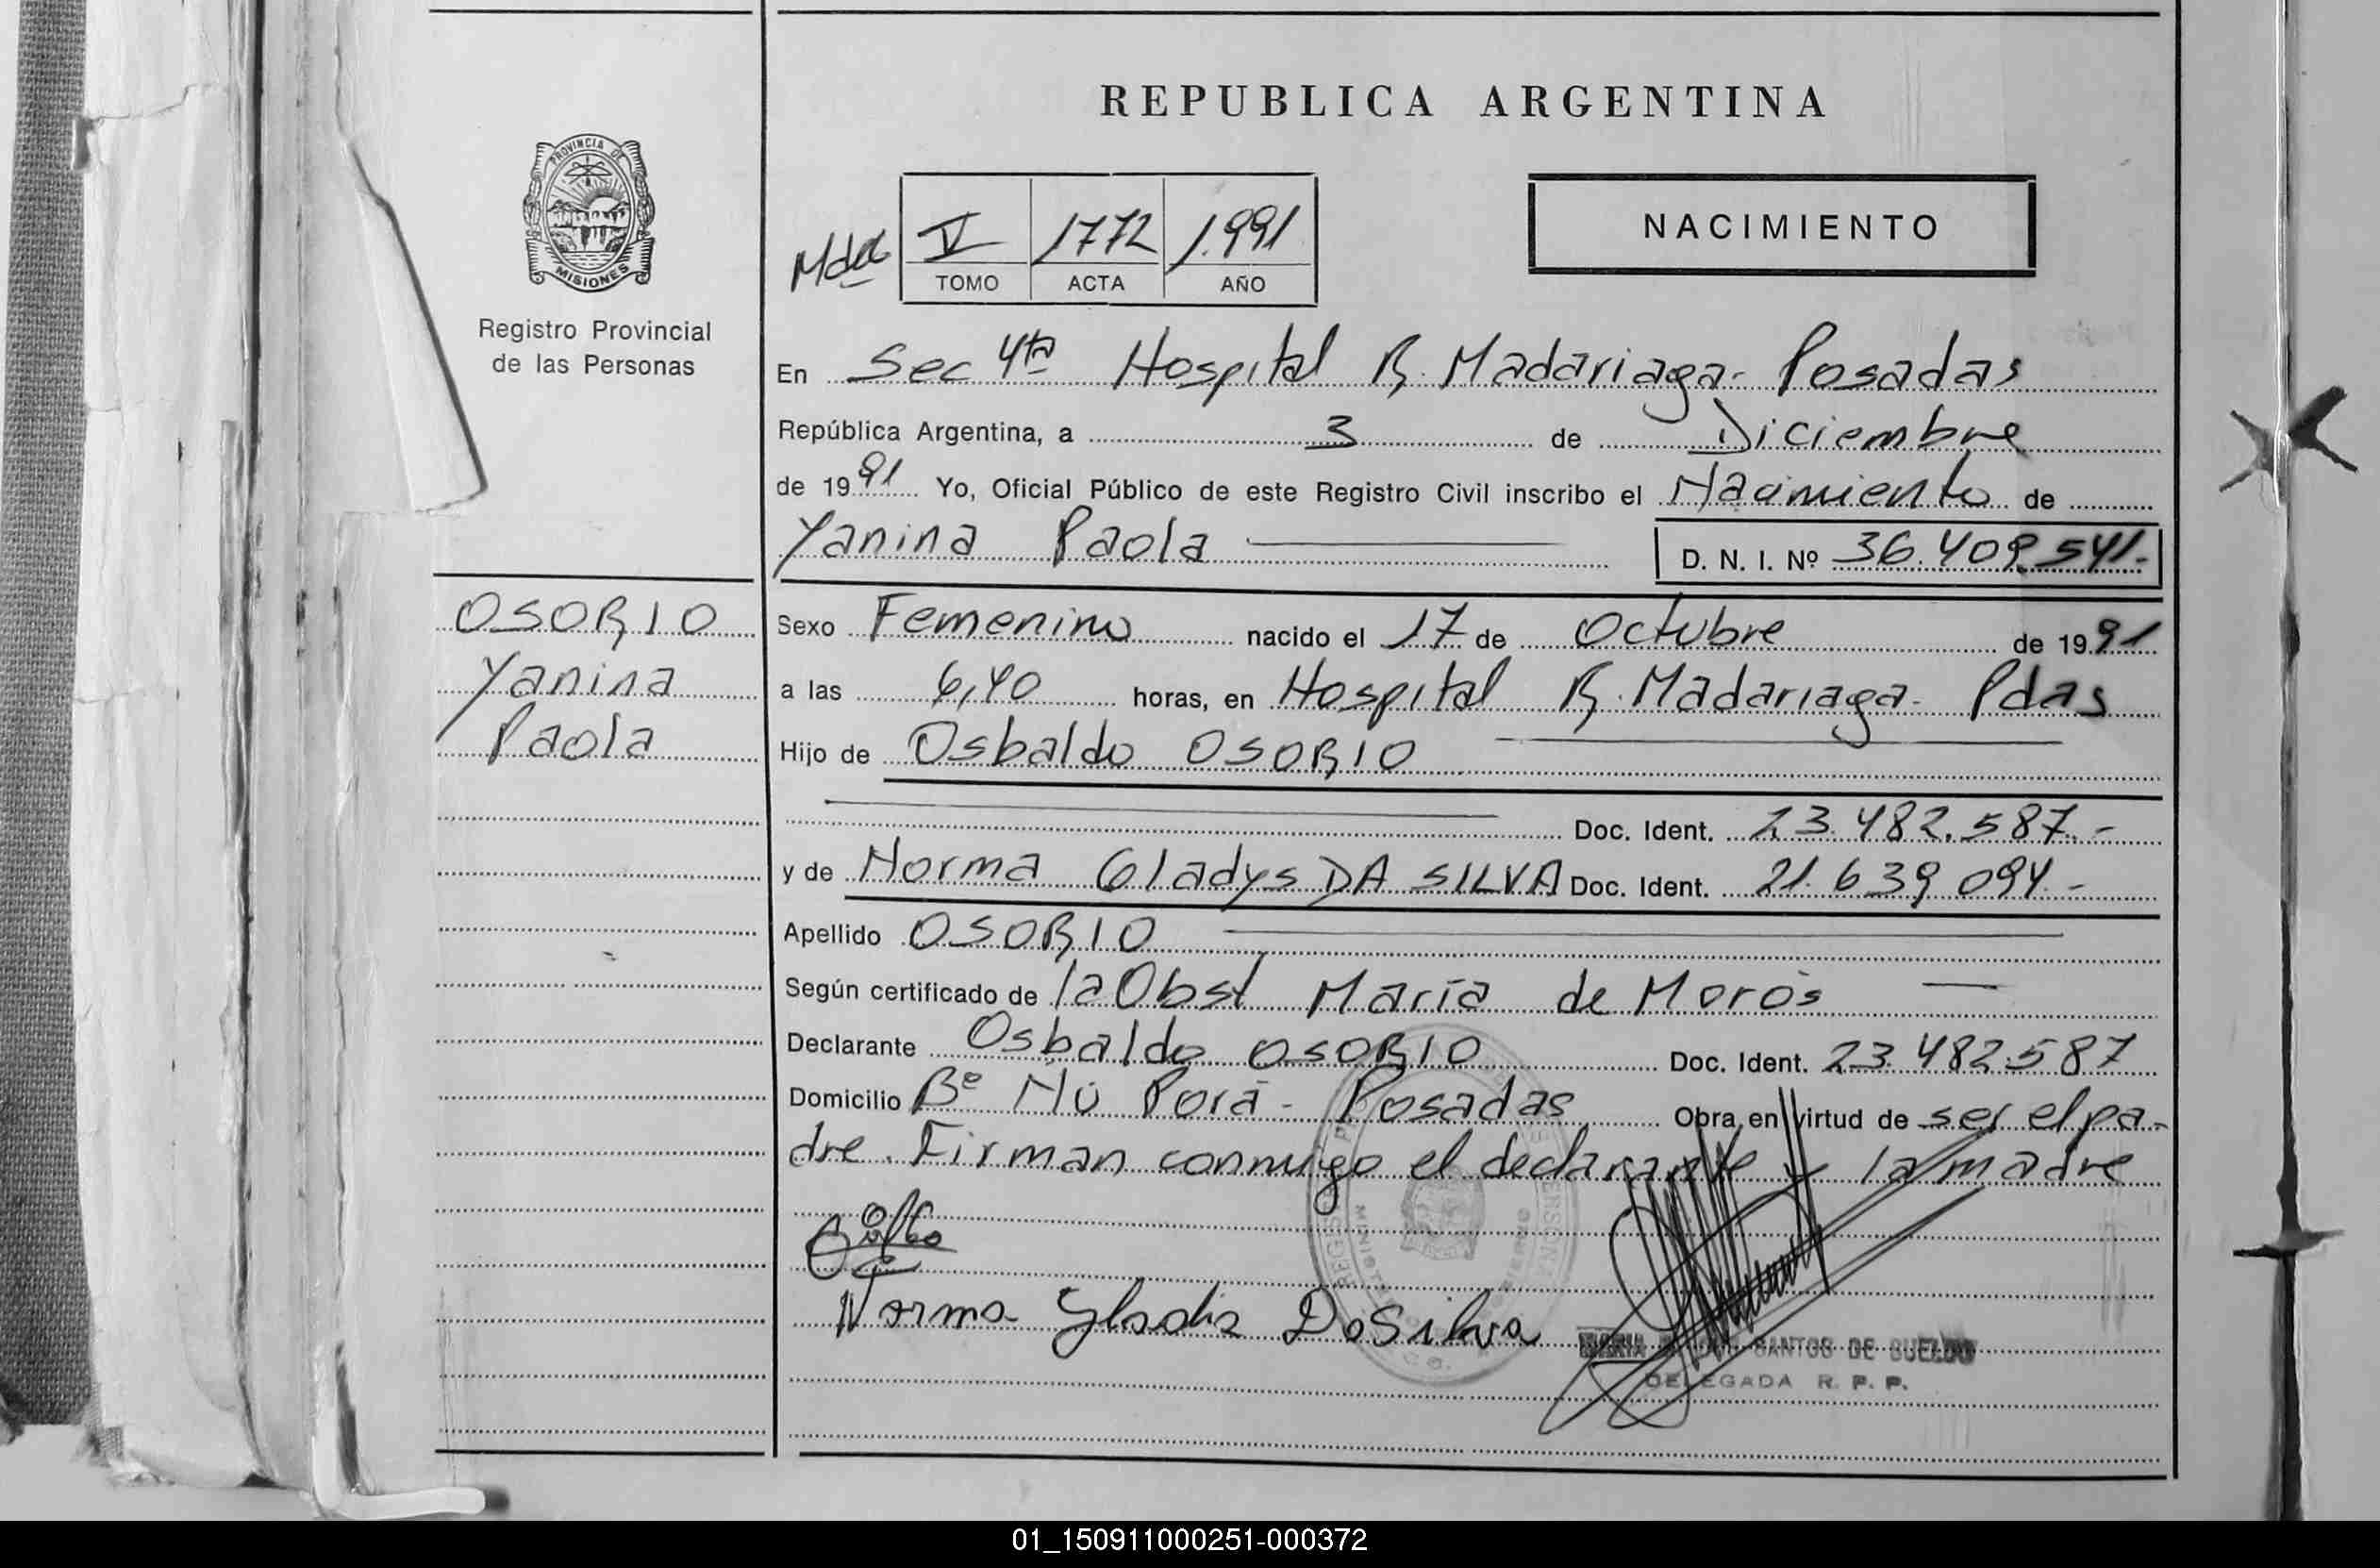 REPUBLICA ARGENTINA
PROVINCIA DE
MISIONES
Registro Provincial
de las Personas
Mda
V 1772 1.991
TOMO ACTA AÑO
NACIMIENTO
En Sec 4ta Hospital R. Madariaga - Posadas
República Argentina, a 3 de Diciembre
de 1991 Yo, Oficial Público de este Registro Civil inscribo el Nacimiento de
Yanina Paola
D. N. I. Nº 36.409.541.-
OSORIO
Yanina
Paola
Sexo Femenino nacido el 17 de Octubre de 1991
a las 6,40 horas, en Hospital R. Madariaga - Pdas
Hijo de Osbaldo OSORIO
Doc. Ident. 23.482.587.-
y de Norma Gladys DA SILVA Doc. Ident. 21.639.094.-
Apellido OSORIO
Según certificado de la Obst María de Moros
Declarante Osbaldo OSORIO Doc. Ident. 23.482.587
Domicilio Bº Ñú Porá - Posadas Obra en virtud de ser el pa-
dre. Firman conmigo el declarante y la madre
Norma Gladis DaSilva
MARIA SANTOS DE
DELEGADA R. P. P.
01_150911000251-000372